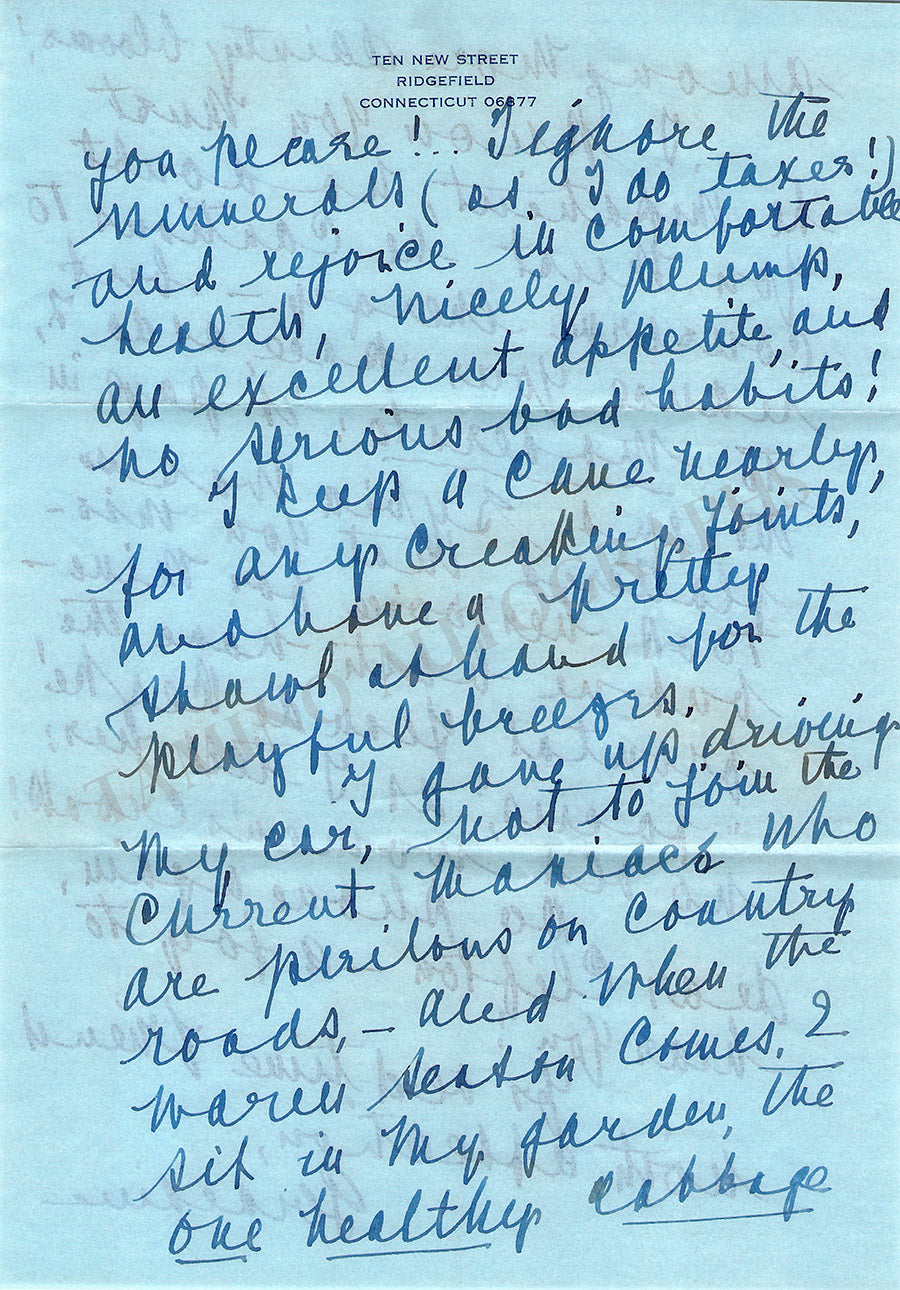 TEN NEW STREET
RIDGEFIELD
CONNECTICUT 06877
you please!.. I ignore the
numerals (as I do taxes!)
and rejoice in comfortable
health, nicely plump,
an excellent appetite, and
no serious bad habits!
I keep a cane nearby,
for any creaking joints,
and have a pretty
shawl at hand for the
playful breezes.
I gave up driving
my car, not to join the
current maniacs who
are perilous on country
roads, – and when the
warm season comes, I
sit in my garden, the
one healthy cabbage